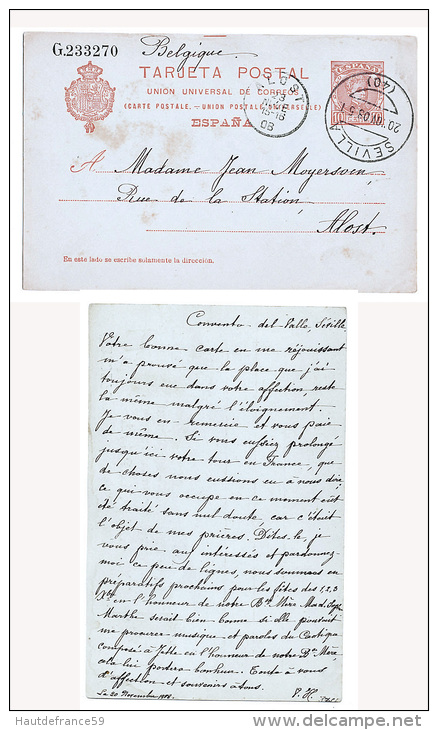 G.233270
Belgique
TARJETA POSTAL
UNIÓN UNIVERSAL DE CORREOS
(CARTE POSTALE.-UNION POSTALE UNIVERSELLE)
ESPAÑA
ALOST
15-16
08
ESPAÑA
10
SEVILLA
(40)
A Madame Jean Moyersoen,
Rue de la Station,
Alost.
En este lado se escribe solamente la dirección.
Convento del Valle, Séville
Votre bonne carte en me réjouissant
m'a prouvé que la place que j'ai
toujours eue dans votre affection, reste
la même malgré l'éloignement.
Je vous en remercie et vous paie
de même. Si vous eussiez prolongé
jusqu'ici votre tour en France, que
de choses nous eussions eu à vous dire,
ce qui vous occupe en ce moment eût
été traité sans nul doute, car c'était
l'objet de mes prières. Dites-le, je
vous prie aux intéressés et pardonnez-
moi ce peu de lignes, nous sommes en
préparatifs prochains pour les fêtes des 1, 2, 3
Xbre en l'honneur de notre Bse Mère Mad. Sophie
Marthe serait bien bonne si elle pouvait
me procurer musique et paroles du Cantique
composé à Jette en l'honneur de notre Bse Mère,
cela lui portera bonheur. Toute à vous
d'affection et souvenirs à tous.
Le 20 Novembre 1908. P. H.
Hautdefrance59
delcampe.net